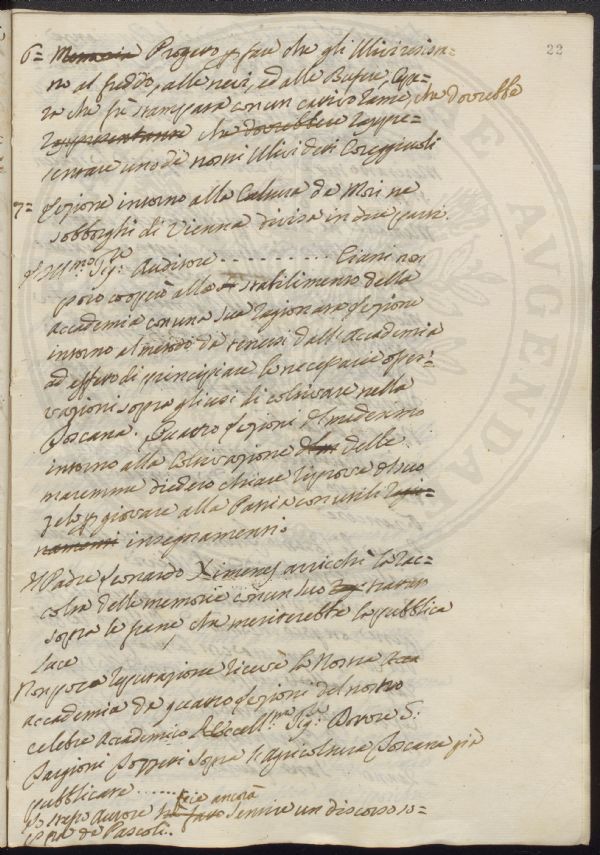 22
6= Memoria Progetto p fare che gli Ulivi resista=
no al freddo, alle nevi, ed alle Bufere, Ope=
ra che fu stampata con un cativo rame, che dovrebbe
rappresentante che dovrebbe rappre=
sentare uno de nostri Ulivi detti Coreggiuoli
7= Lezione intorno alla Cultura de Mori ne
sobborghi di Vienna divisa in due parti.
Ill.mo Sig.e Auditore . . . . . . . . . . Ciani non
poco cooperò allo stabilimento della
accademia con una sua ragionata Lezione
intorno al metodo da tenersi dall'Accademia
ad effetto di principiare le necessarie osser=
vazioni sopra gli usi di coltivare nella
Toscana. Quattro Lezioni del medesimo
intorno alla coltivazione delle
maremme diedero chiare riprove del suo
zelo p giovare alla Patria con utili ragio=
namenti insegnamenti.
Il Padre Leonardo Ximenes arricchì la rac=
colta delle memorie con un suo
sopra le frane che meriterebbe la pubblica
luce
Non poca reputazione riceve la Nostra
accademia da quattro Lezioni del nostro
celebre Accademico l'Eccell.mo Sig.e Dottore G:
Targioni Tozzetti sopra l'Agricoltura Toscana già
pubblicate . . . . . .
Lo stesso Autore fece ancora sentire un discorso so=
pra de Pascoli.
AUGENDAE